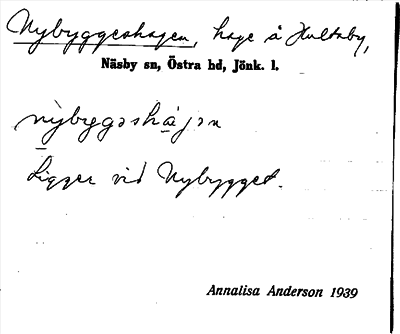 Nybyggeshagen, hage å Hultaby,
Näsby sn, Östra hd, Jönk. l.
nỳbygəshàgən
Ligger vid Nybygget.
Annalisa Anderson 1939